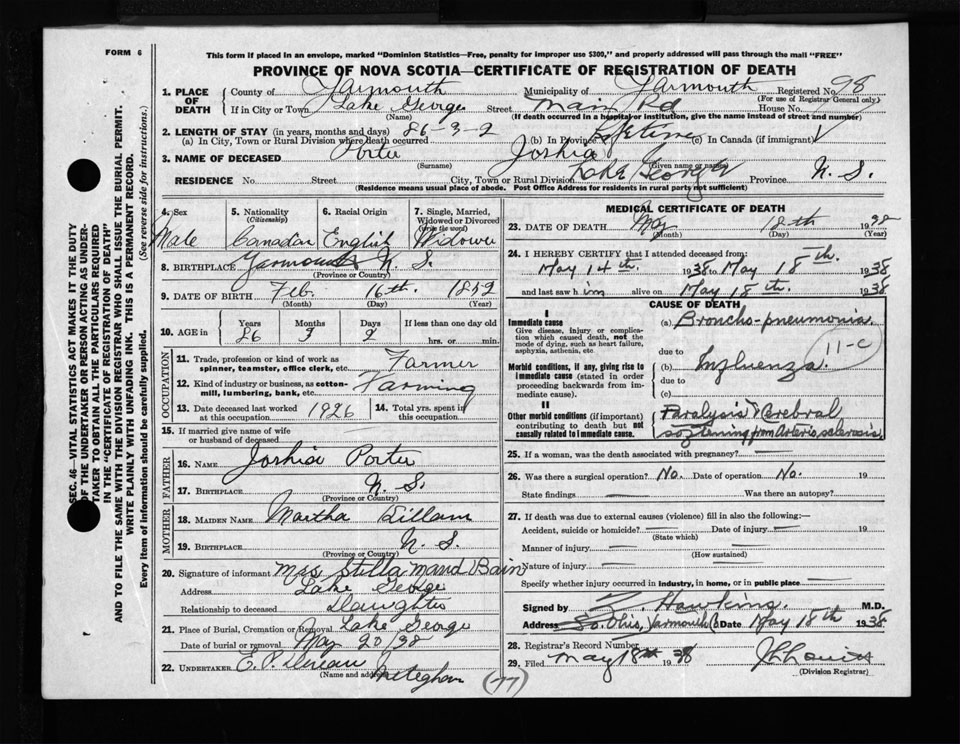 FORM 6
This form if placed in an envelope, marked "Dominion Statistics—Free, penalty for improper use $300," and properly addressed will pass through the mail "FREE"
PROVINCE OF NOVA SCOTIA—CERTIFICATE OF REGISTRATION OF DEATH
SEC. 46—VITAL STATISTICS ACT MAKES IT THE DUTY
OF THE UNDERTAKER OR PERSON ACTING AS UNDER-
TAKER TO OBTAIN ALL THE PARTICULARS REQUIRED
IN THE "CERTIFICATE OF REGISTRATION OF DEATH"
AND TO FILE THE SAME WITH THE DIVISION REGISTRAR WHO SHALL ISSUE THE BURIAL PERMIT.
WRITE PLAINLY WITH UNFADING INK. THIS IS A PERMANENT RECORD.
Every item of information should be carefully supplied. (See reverse side for instructions.)
1. PLACE OF DEATH County of Yarmouth Municipality of Yarmouth Registered No. 98
(For use of Registrar General only)
If in City or Town Lake George Street Main Rd House No.
(Name) (If death occurred in a hospital or institution, give the name instead of street and number)
2. LENGTH OF STAY (in years, months and days) 86-3-2
(a) In City, Town or Rural Division where death occurred (b) In Province Lifetime (c) In Canada (if immigrant)
3. NAME OF DECEASED Porter Joshia
(Surname) (Given name or names)
RESIDENCE No. Street City, Town or Rural Division Lake George Province N. S.
(Residence means usual place of abode. Post Office Address for residents in rural parts not sufficient)
4. Sex Male
5. Nationality (Citizenship) Canadian
6. Racial Origin English
7. Single, Married, Widowed or Divorced (Write the word) Widower
8. BIRTHPLACE Yarmouth N. S.
(Province or Country)
9. DATE OF BIRTH Feb. 16th. 1852
(Month) (Day) (Year)
10. AGE in Years 86 Months 3 Days 2 If less than one day
hrs. or min.
OCCUPATION
11. Trade, profession or kind of work as spinner, teamster, office clerk, etc. Farmer
12. Kind of industry or business, as cotton-mill, lumbering, bank, etc. Farming
13. Date deceased last worked at this occupation 1926 14. Total yrs. spent in this occupation
15. If married give name of wife or husband of deceased
FATHER
16. NAME Joshia Porter
17. BIRTHPLACE N. S.
(Province or Country)
MOTHER
18. MAIDEN NAME Martha Killam
19. BIRTHPLACE N. S.
(Province or Country)
20. Signature of informant Mrs Stella Maud Bain
Address Lake George
Relationship to deceased Daughter
21. Place of Burial, Cremation or Removal Lake George
Date of burial or removal May 20/38
22. UNDERTAKER E. P. Meteghan
(Name and address)
(77)
MEDICAL CERTIFICATE OF DEATH
23. DATE OF DEATH May 18th 1938
(Month) (Day) (Year)
24. I HEREBY CERTIFY that I attended deceased from:
May 14th. 1938 to May 18th. 1938
and last saw him alive on May 18th. 1938
CAUSE OF DEATH
I
Immediate cause (a) Broncho-pneumonia
Give disease, injury or complication which caused death, not the mode of dying, such as heart failure, asphyxia, asthenia, etc.
due to
11-c
Morbid conditions, if any, giving rise to immediate cause (stated in order proceeding backwards from immediate cause). (b) Influenza.
due to
(c)
II
Other morbid conditions (if important) contributing to death but not causally related to immediate cause. Paralysis & Cerebral
softening from Arterio sclerosis
25. If a woman, was the death associated with pregnancy? —
26. Was there a surgical operation? No. Date of operation No. 19
State findings — Was there an autopsy? —
27. If death was due to external causes (violence) fill in also the following:—
Accident, suicide or homicide? — Date of injury — 19
(State which)
Manner of injury — —
(How sustained)
Nature of injury —
Specify whether injury occurred in industry, in home, or in public place —
Signed by Z. Hawkins. M.D.
Address So. Ohio, Yarmouth Co Date May 18th 1938
28. Registrar's Record Number
29. Filed May 18th 1938
(Division Registrar)